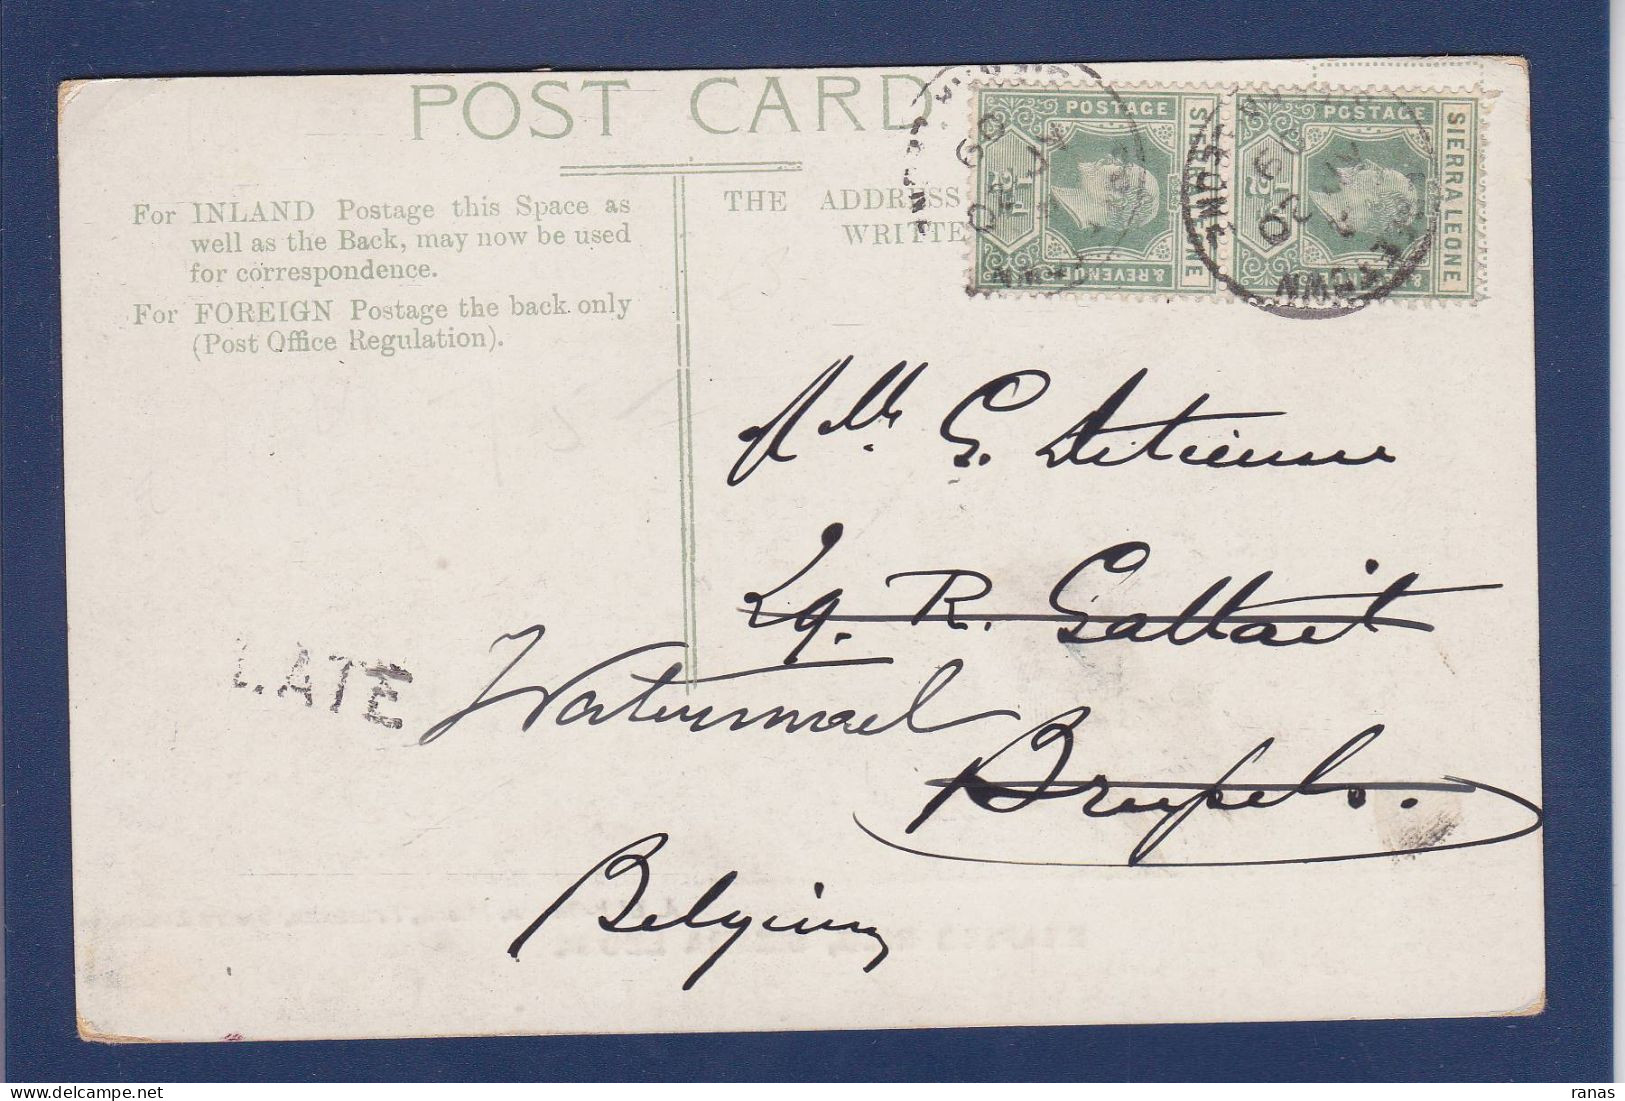 POST CARD
For INLAND Postage this Space as
well as the Back, may now be used
for correspondence.
For FOREIGN Postage the back only
(Post Office Regulation).
THE ADDRESS
WRITTE
POSTAGE
& REVENUE
SIERRA LEONE
POSTAGE
SIERRA LEONE
Mlle G. Detienne
R. Gallait
LATE
Watermael
Brussels.
Belgium
ranas